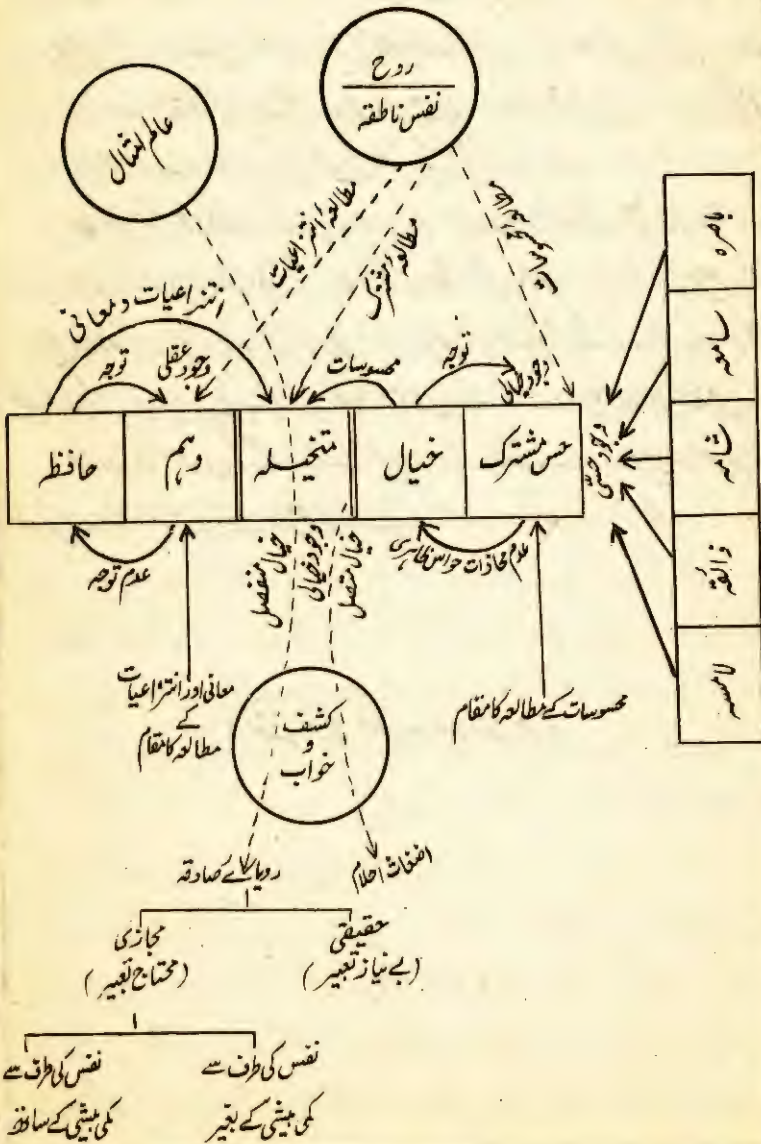 روح
نفس ناطقہ
عالم المثال
مطالعۂ انتزاعیات
مطالعۂ مشترک
انتزاعیات و معانی
توجہ
وجود عقلی
محسوسات
توجہ
وجود خیالی
حافظہ
وہم
متخیلہ
خیال
حس مشترک
وجود حسّی
باصرہ
سامعہ
شامہ
ذائقہ
لامسہ
عدم توجہ
خیال منفصل
وجود خیالی
خیال متصل
عدم محاذات حواس ظاہری
معانی اور انتزاعیات
کے
مطالعہ کا مقام
محسوسات کے مطالعہ کا مقام
کشف
و
خواب
رویائے صادقہ
اضغاث احلام
حقیقی
(بے نیاز تعبیر)
مجازی
(محتاج تعبیر)
نفس کی طرف سے
کمی بیشی کے بغیر
نفس کی طرف سے
کمی بیشی کے ساتھ